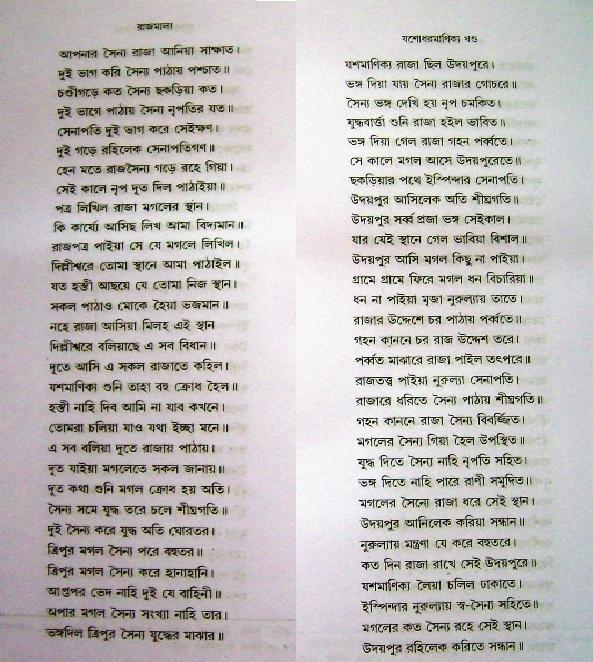 রাজমালা
আপনার সৈন্য রাজা আনিয়া সাক্ষাত।
দুই ভাগ করি সৈন্য পাঠায় পশ্চাত॥
চণ্ডীগড়ে কত সৈন্য ছকড়িয়া কত।
দুই ভাগে পাঠায় সৈন্য নৃপতির যত॥
সেনাপতি দুই ভাগ করে সেইক্ষণ।
দুই গড়ে রহিলেক সেনাপতিগণ॥
হেন মতে রাজসৈন্য গড়ে রহে গিয়া।
সেই কালে নৃপ দূত দিল পাঠাইয়া॥
পত্র লিখিল রাজা মগলের স্থান।
কি কার্য্যে আসিছ লিখ আমা বিদ্যমান॥
রাজপত্র পাইয়া সে যে মগলে লিখিল।
দিল্লীশ্বরে তোমা স্থানে আমা পাঠাইল॥
যত হস্তী আছয়ে যে তোমা নিজ স্থান।
সকল পাঠাও মোকে হৈয়া ভজমান॥
নহে রাজা আসিয়া মিলহ এই স্থান
দিল্লীশ্বরে বলিয়াছে এ সব বিধান॥
দূতে আসি এ সকল রাজাতে কহিল।
যশমাণিক্য শুনি তাহা বহু ক্রোধ হৈল॥
হস্তী নাহি দিব আমি না যাব কখনে।
তোমরা চলিয়া যাও যথা ইচ্ছা মনে॥
এ সব বলিয়া দূতে রাজায় পাঠায়।
দূত যাইয়া মগলেতে সকল জানায়॥
দূত কথা শুনি মগল ক্রোধ হয় অতি।
সৈন্য সমে যুদ্ধ তরে চলে শীঘ্রগতি॥
দুই সৈন্য করে যুদ্ধ অতি ঘোরতর।
ত্রিপুর মগল সৈন্য পরে বহুতর॥
ত্রিপুর মগল সৈন্য করে হানাহানি।
আপ্তপর ভেদ নাহি দুই যে বাহিনী॥
অপার মগল সৈন্য সংখ্যা নাহি তার।
ভঙ্গদিল ত্রিপুর সৈন্য যুদ্ধের মাঝার॥
যশোধরমাণিক্য খণ্ড
যশমাণিক্য রাজা ছিল উদয়পুরে।
ভঙ্গ দিয়া যায় সৈন্য রাজার গোচরে॥
সৈন্য ভঙ্গ দেখি হয় নৃপ চমকিত।
যুদ্ধবার্ত্তা শুনি রাজা হইল ভাবিত॥
ভঙ্গ দিয়া গেল রাজা গহন পর্ব্বতে।
সে কালে মগল আসে উদয়পুরেতে॥
ছকড়িয়ার পথে ইস্পিন্দার সেনাপতি।
উদয়পুর আসিলেক অতি শীঘ্রগতি॥
উদয়পুর সর্ব্ব প্রজা ভঙ্গ সেইকাল।
যার যেই স্থানে গেল ভাবিয়া বিশাল॥
উদয়পুর আসি মগল কিছু না পাইয়া।
গ্রামে গ্রামে ফিরে মগল ধন বিচারিয়া॥
ধন না পাইয়া মৃজা নুরুল্যায় তাতে।
রাজার উদ্দেশে চর পাঠায় পর্ব্বতে॥
গহন কাননে চর রাজ উদ্দেশ তরে।
পর্ব্বত মাঝারে রাজা পাইল তৎপরে॥
রাজতত্ত্ব পাইয়া নুরুল্যা সেনাপতি।
রাজারে ধরিতে সৈন্য পাঠায় শীঘ্রগতি॥
গহন কাননে রাজা সৈন্য বিবর্জ্জিত।
মগলের সৈন্য গিয়া হৈল উপস্থিত॥
যুদ্ধ দিতে সৈন্য নাহি নৃপতি সহিত।
ভঙ্গ দিতে নাহি পারে রাণী সমুদিত॥
মগলের সৈন্যে রাজা ধরে সেই স্থান।
উদয়পুর আনিলেক করিয়া সন্ধান॥
নুরুল্যায় মন্ত্রণা যে করে বহুতরে।
কত দিন রাজা রাখে সেই উদয়পুরে॥
যশমাণিক্য লৈয়া চলিল ঢাকাতে।
ইস্পিন্দার নুরুল্যায় স্ব-সৈন্য সহিতে॥
মগলের কত সৈন্য রহে সেই স্থান।
উদয়পুর রহিলেক করিতে সন্ধান॥